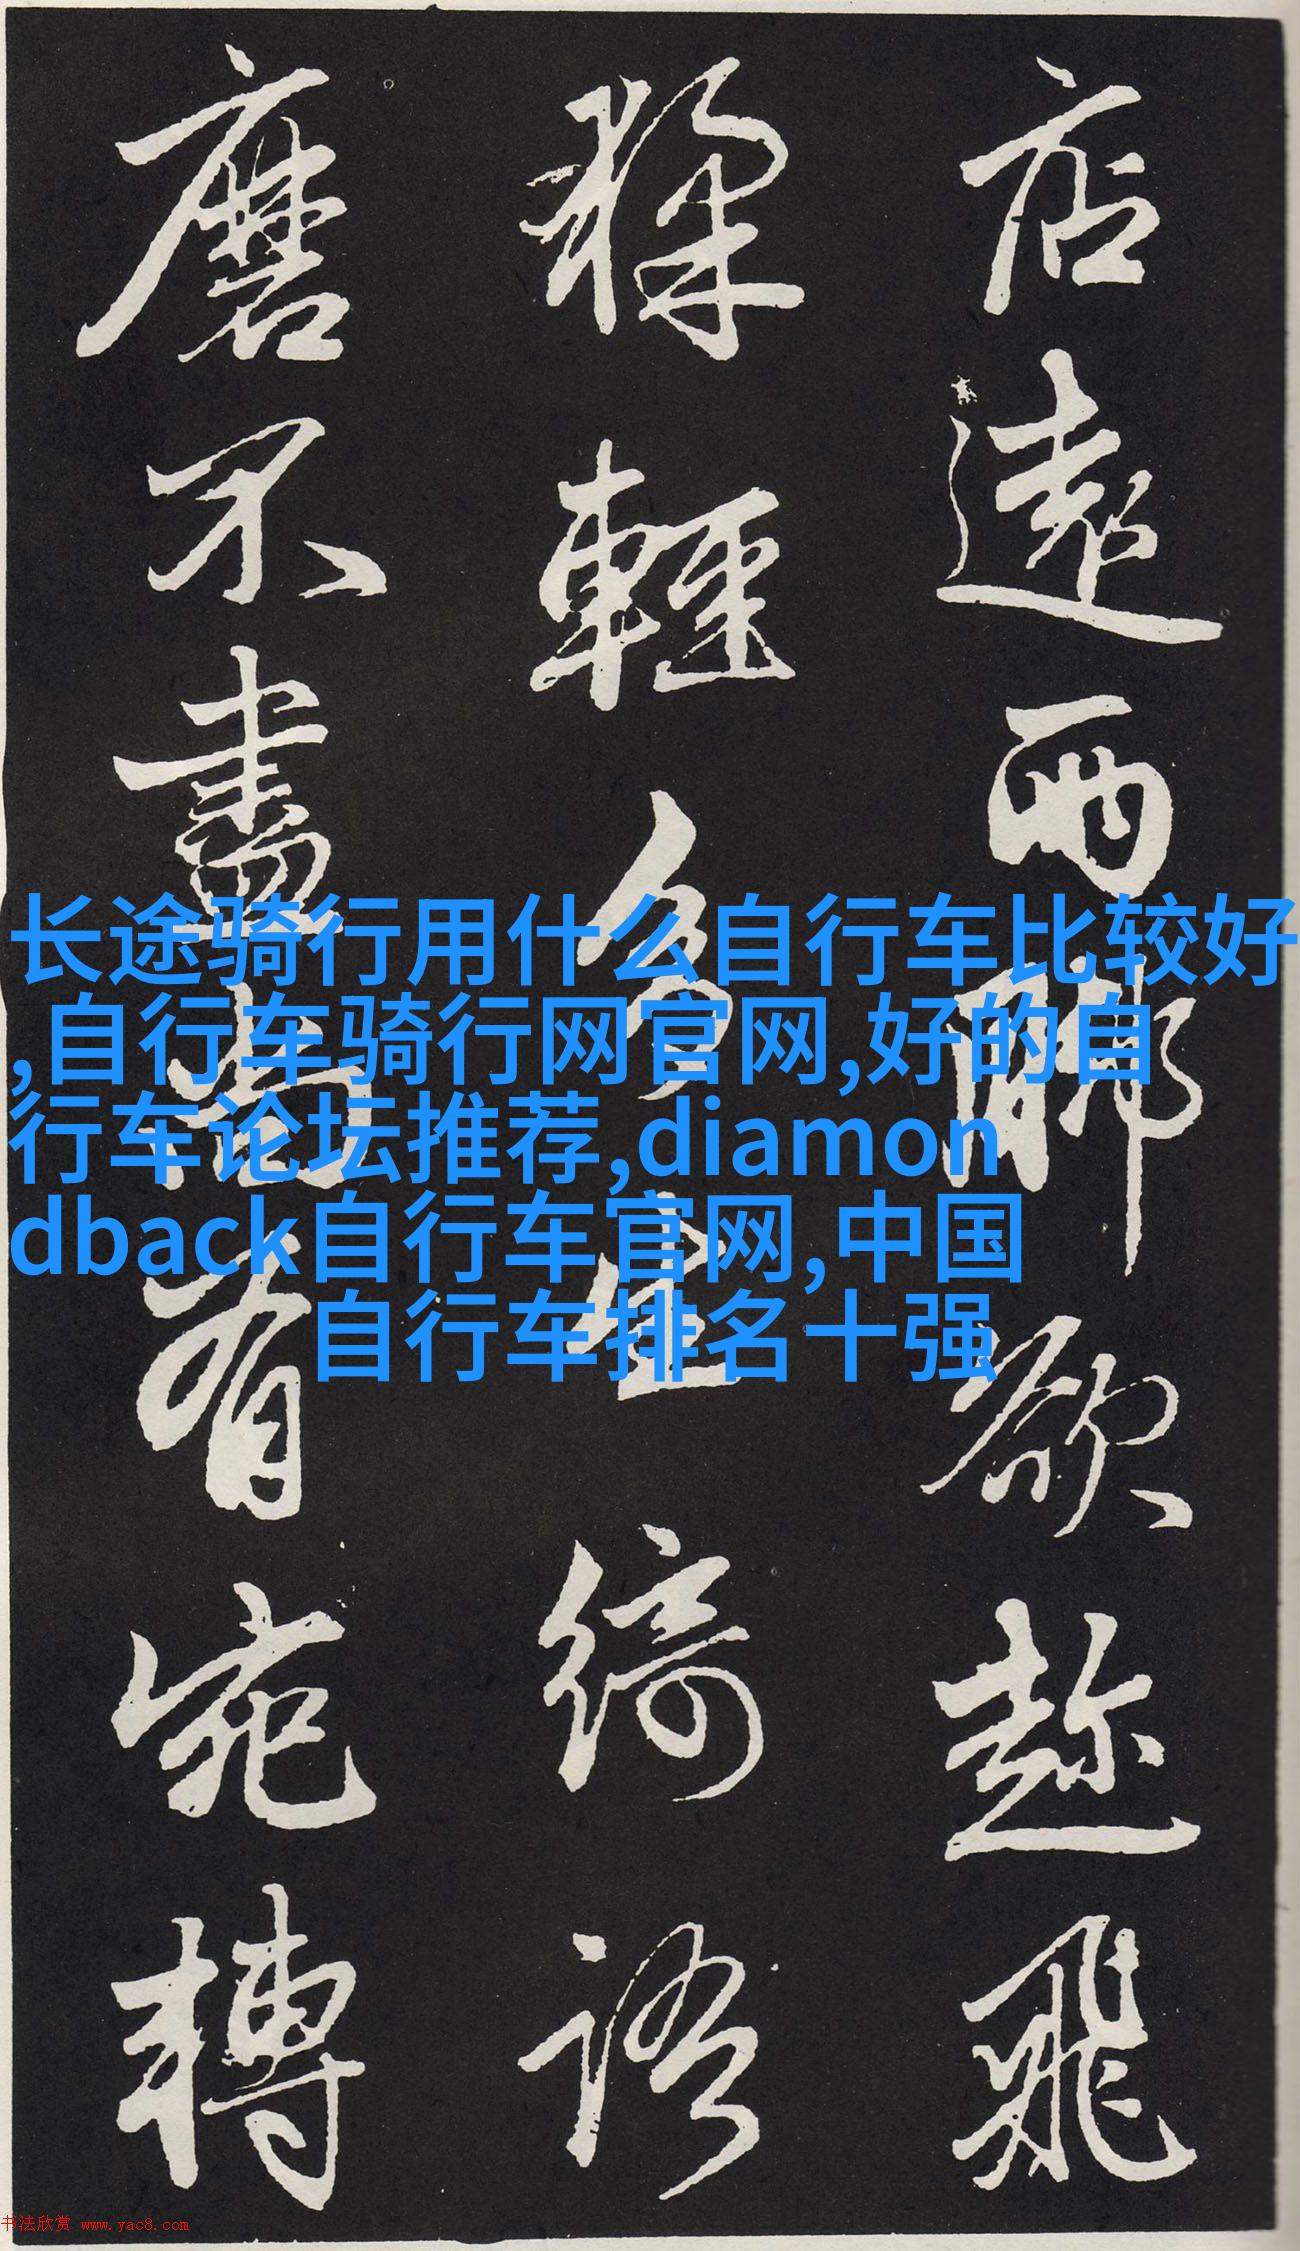 店遠両聊欲趁飛
轻多生綺語
磨不盡尚有宛轉
长途骑行用什么自行车比较好
,自行车骑行网官网,好的自
行车论坛推荐,diamon
dback自行车官网,中国
自行车排名十强
书法欣赏 www.yac8.com